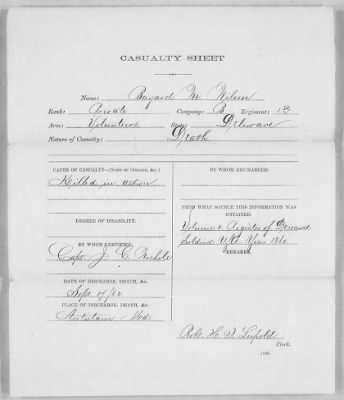 CASUALTY SHEET
Name: Bayard M Wilson
Rank: Private Company: B Regiment: 1st
Arm: Volunteers State: Delaware
Nature of Casualty: Death
CAUSE OF CASUALTY—(NAME OF DISEASE, &c.)
Killed in action
DEGREE OF DISABILITY.
BY WHOM CERTIFIED.
Capt. J. C. Nichols
DATE OF DISCHARGE, DEATH, &c.
Sept 17/62
PLACE OF DISCHARGE, DEATH, &c.
Antietam Md
BY WHOM DISCHARGED.
FROM WHAT SOURCE THIS INFORMATION WAS
OBTAINED.
Register of Deceased
Soldiers
REMARKS.
Robt H. Leipold
Clerk.